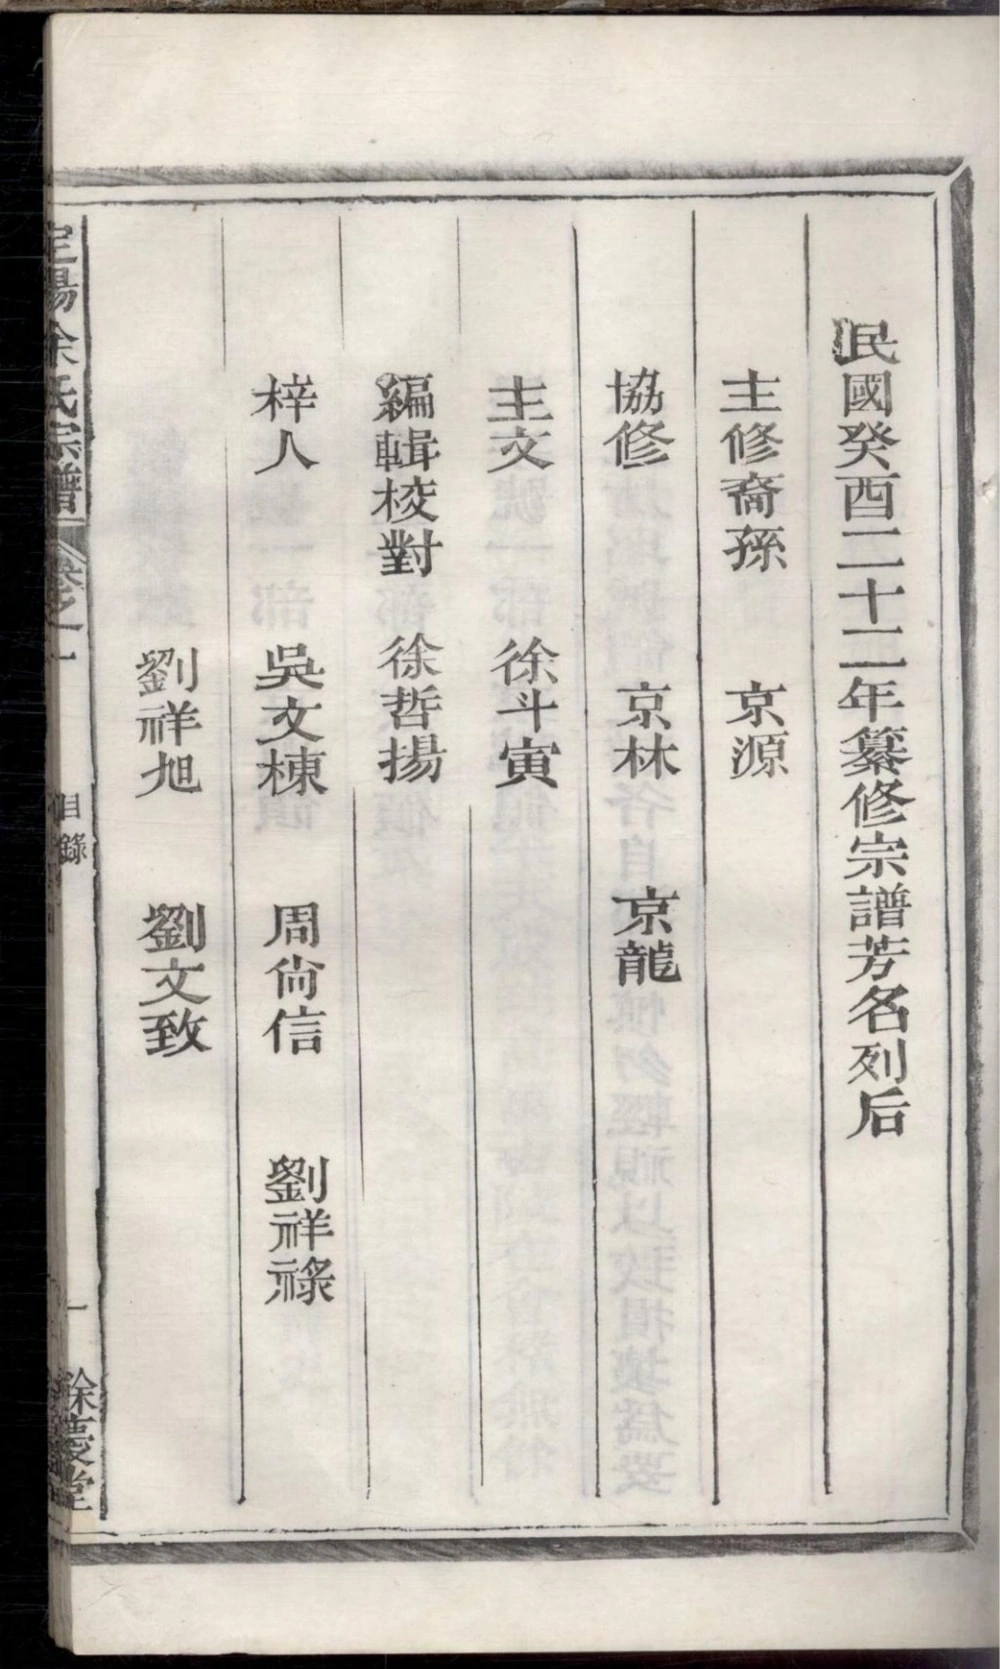 民國癸酉二十二年纂修宗譜芳名列后
主修裔孫 京源
協修 京林 京龍
主文 徐斗寅
編輯校對 徐哲揚
梓人 吳文棟 周尙信 劉祥祿
劉祥旭 劉文致
定陽余氏宗譜 卷之一 目錄 一 餘慶堂